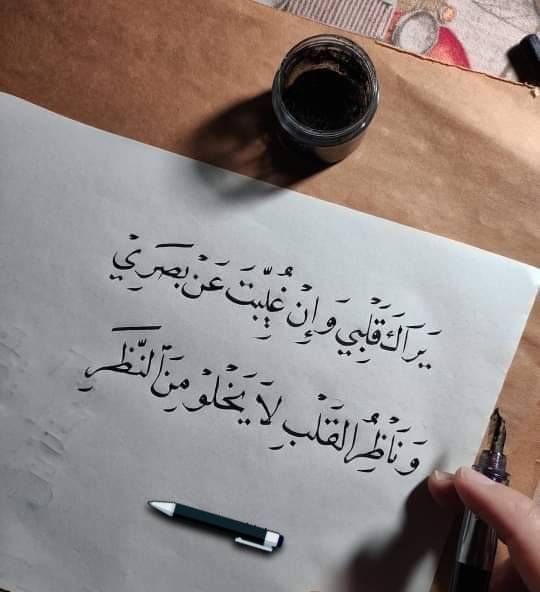 يَرَاكَ قَلْبِي وَإِنْ غُيِّبْتَ عَنْ بَصَرِيْ
وَنَاظِرُ القَلْبِ لَا يَخْلُوْ مِنَ النَّظَرِ